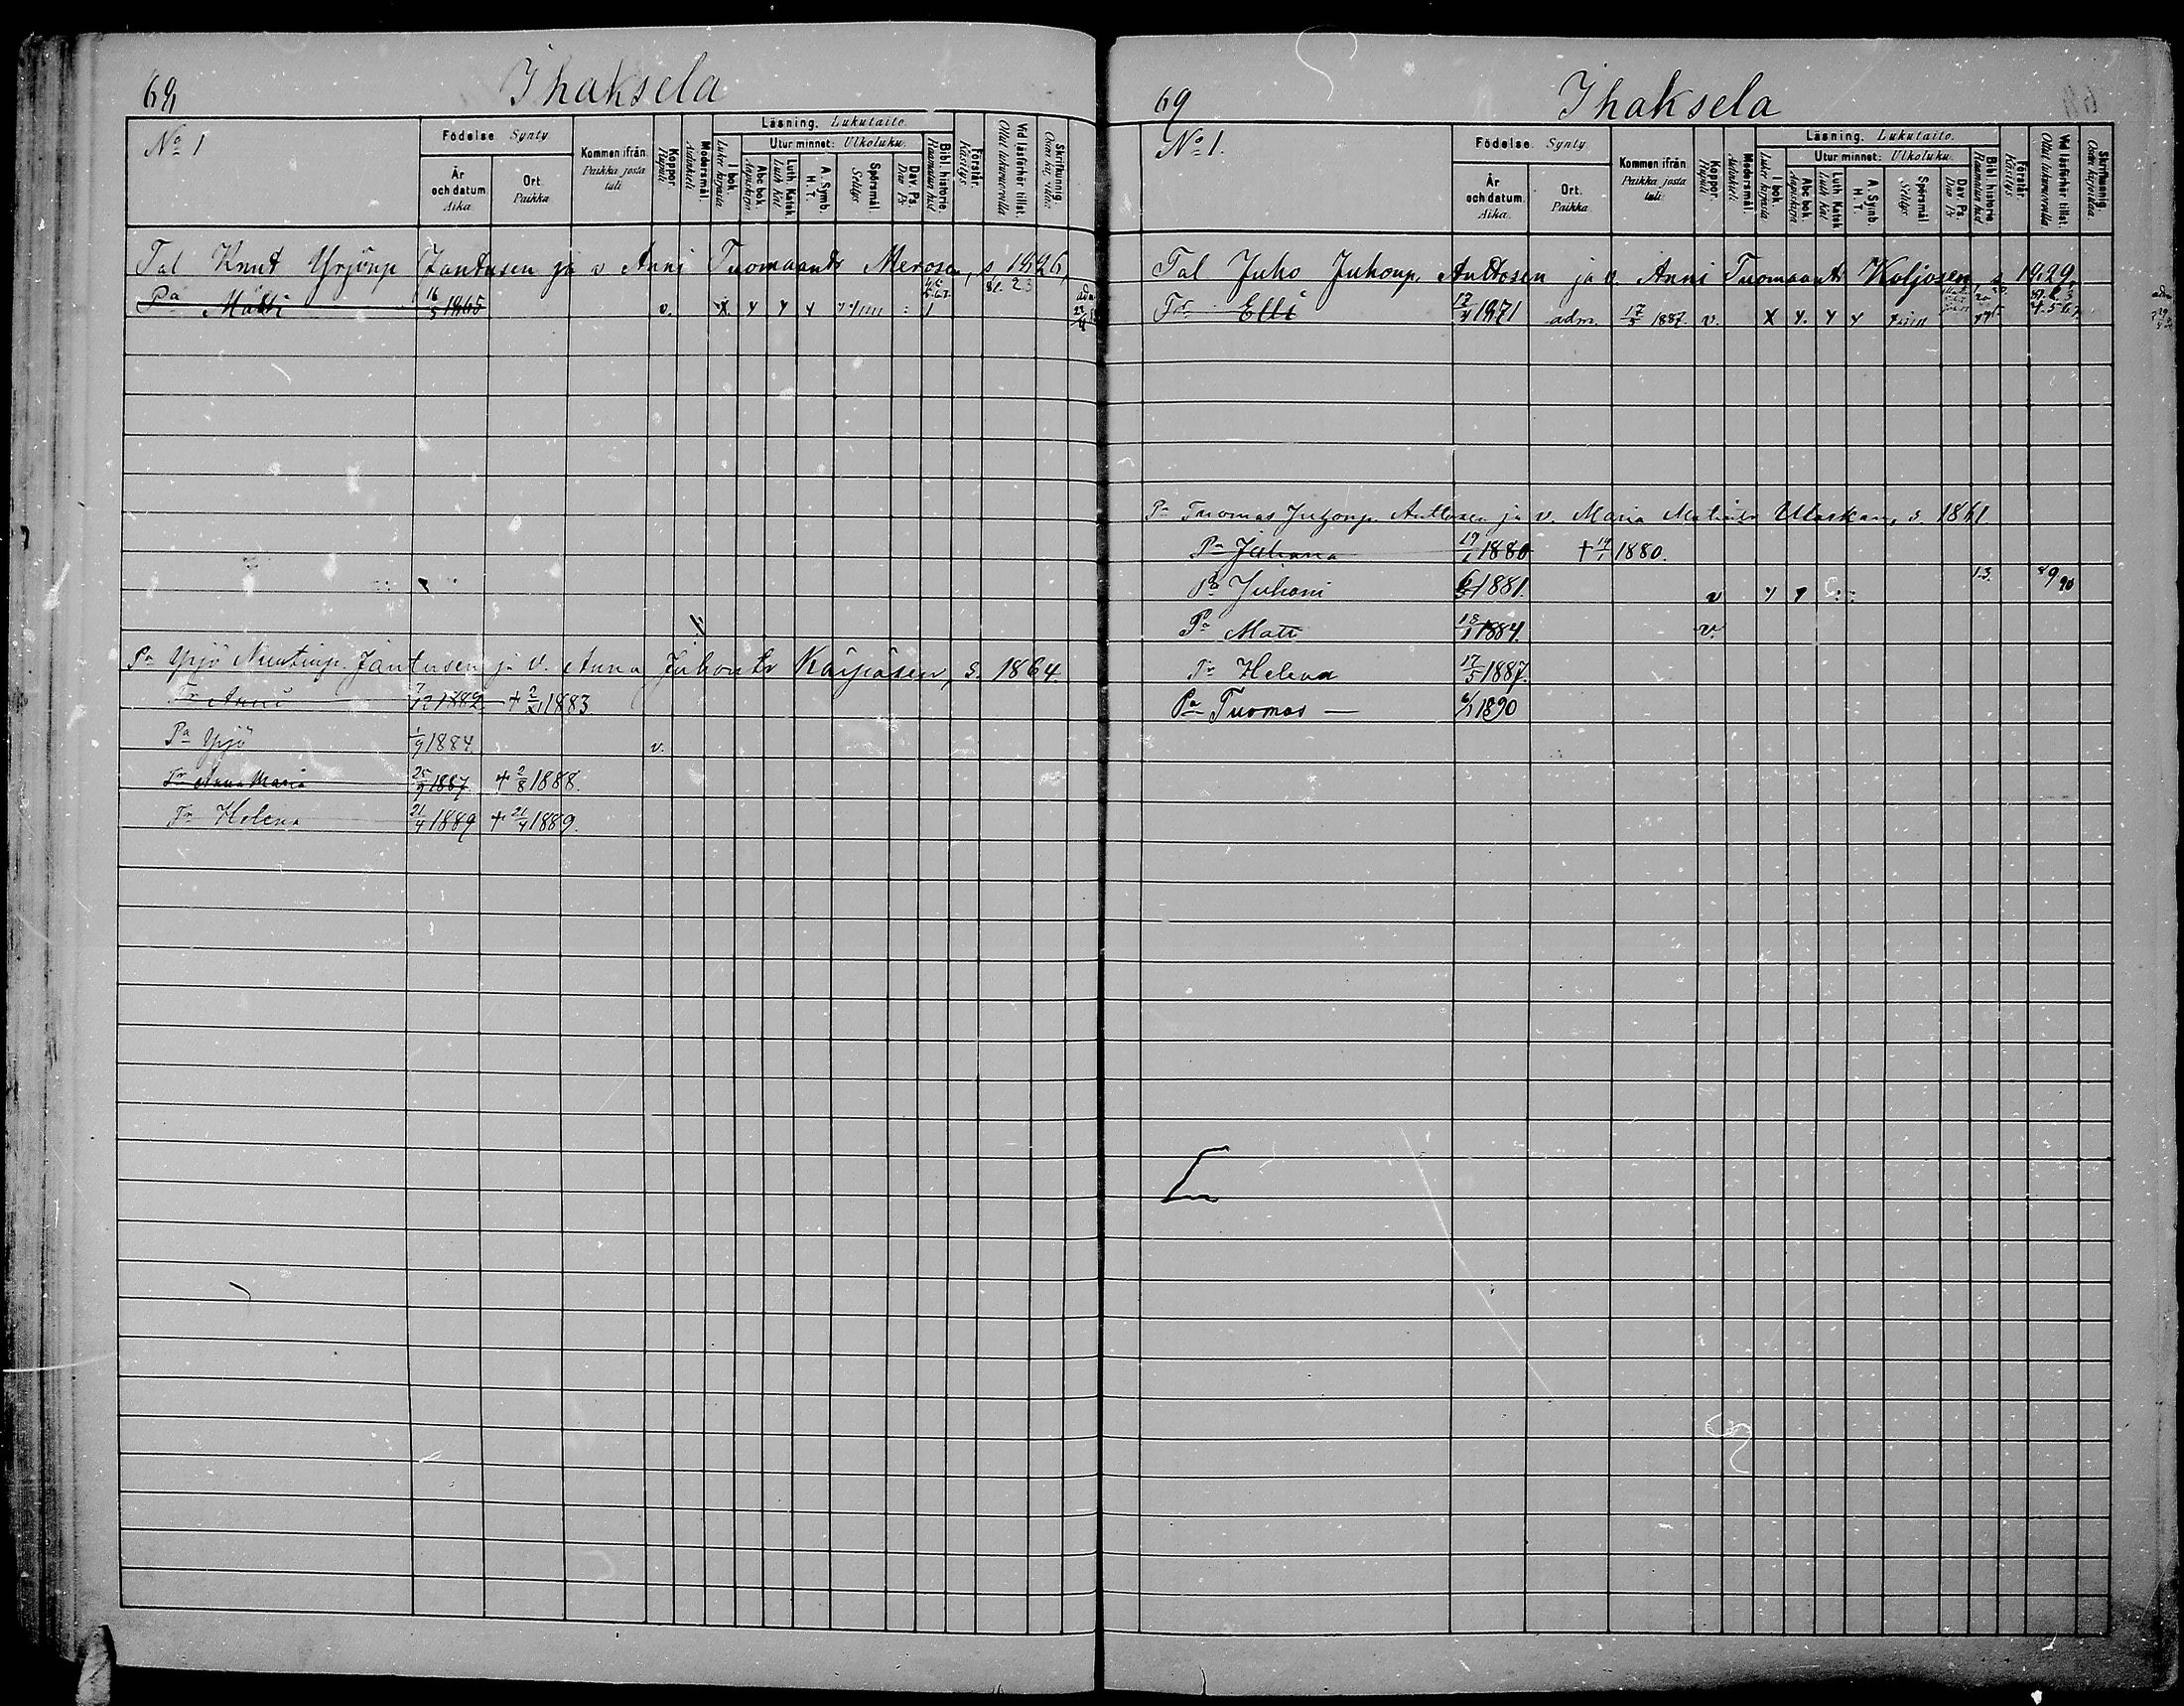 68
Ihaksela
No 1
Födelse. Synty.
År och datum. Aika.
Ort. Paikka
Kommen ifrån Paikka josta tuli.
Koppor. Rupuli
Modersmål. Äidinkieli
Läsning. Lukutaito.
I bok. Lukee kirjasta
Utur minnet: Ulkoluku.
Abc bok. Aapiskirja
Luth. Katek. Luth Kat
A. Symb. H. T.
Spörsmål. Selitys
Dav. Ps. Dav Ps
Bibl. historie. Raamatun hist
Förstår. Käsitys.
Vid läsförhör tillst. Ollut lukuvuorolla
Skrifkunnig. Osaa kirjoittaa
Tal Knut Yrjönp Jantusen ja v Anni Tuomaantr Merosen, s 1826,
Pa Matti 16/5 1865 v. x y y y
Pa Yrjö Nuutinp. Jantusen ja v. Anna Juhontr Karjiasen, s. 1864.
Tr Anni 7/12 1882 + 2/11 1883
Pa Yrjö 1/9 1884 v.
Tr Anna Maria 25/9 1887 + 2/8 1888.
Tr Helena 21/4 1889 + 21/4 1889.
69
Ihaksela
No 1.
Födelse. Synty.
År och datum. Aika.
Ort. Paikka.
Kommen ifrån. Paikka josta tuli.
Koppor. Rupuli
Modersmål. Äidinkieli
Läsning. Lukutaito.
I bok. Lukee kirjasta
Utur minnet: Ulkoluku.
Abc bok. Aapiskirja
Luth. Katek. Luth Kat
A. Symb. H. T.
Spörsmål. Selitys
Dav. Ps. Dav Ps
Bibl. historie. Raamatun hist
Förstår. Käsitys.
Vid läsförhör tillst. Ollut lukuvuorolla
Skrifkunnig. Osaa kirjoittaa.
Tal Juho Juhonp. Anttosen ja v. Anni Tuomaantr Koljosen s 1829,
Tr Elli 12/4 1871 adm. 17/5 1887. v. x y. y y
Pa Tuomas Juhonp. Anttosen ja v. Maria Matintr Ulaskan, s. 1861
Pa Juhana 19/1 1880 + 19/1 1880.
Pa Juhani 6/5 1881. v y y 1.3. 89 90
Pa Matti 18/1 1884. v.
Tr Helena 17/5 1887.
Pa Tuomas — 6/1 1890